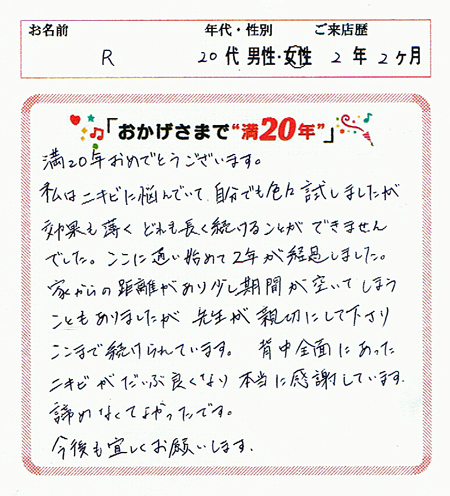 お名前 年代・性別 ご来店歴
R 20代 男性・女性 2年2ヶ月
「おかげさまで“満20年”」
満20年おめでとうございます。
私はニキビに悩んでいて、自分でも色々試しましたが
効果も薄く どれも長く続けることができません
でした。ここに通い始めて2年が経過しました。
家からの距離があり少し期間が空いてしまう
こともありましたが 先生が親切にして下さり
ここまで続けられています。 背中全面にあった
ニキビがだいぶ良くなり本当に感謝しています。
諦めなくてよかったです。
今後も宜しくお願いします。